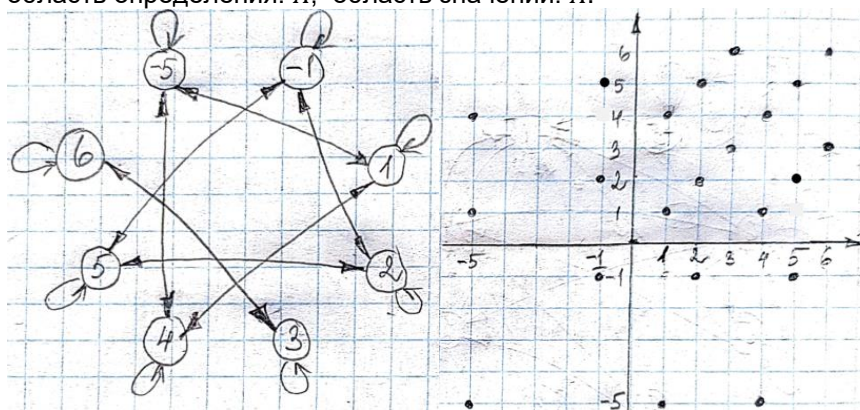 область определения: A, область значений: A.
-5 -1
6
1
5 2
4 3
6
5
4
3
2
1
-5 -1 1 2 3 4 5 6
-1
-5